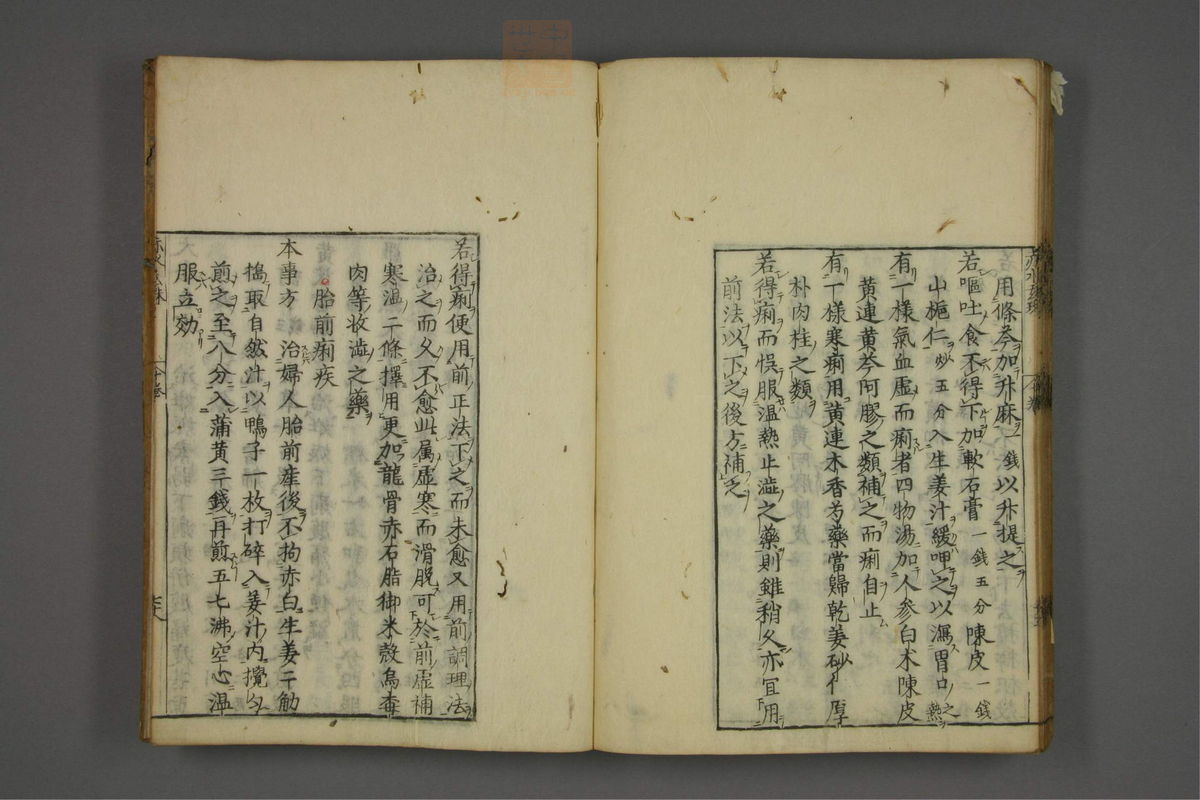 用條芩加升麻一錢以升提之
若嘔吐食不得下加軟石膏一錢五分陳皮一錢
山梔仁炒五分入生姜汁緩呷之以瀉胃口之熱
有一樣氣血虛而痢者四物湯加人參白术陳皮
黄連黄芩阿膠之類補之而痢自止
有一樣寒痢用黄連木香芍藥當歸乾姜砂仁厚
朴肉桂之類
若得痢而悞服温熱止澁之藥則雖稍久亦宜用
前法以下之後方補之
若得痢便用前正法下之而未愈又用前調理法
治之而久不愈此属虚寒而滑脱可於前虚補
寒温二條擇用更加龍骨赤石脂御米殼烏梅
肉等收澁之藥
胎前痢疾
本事方 治婦人胎前産後不拘赤白生姜二觔
搗取自然汁以鴨子一枚打碎入姜汁内攪匀
煎之至八分入蒲黄三錢再煎五七沸空心温
服立効